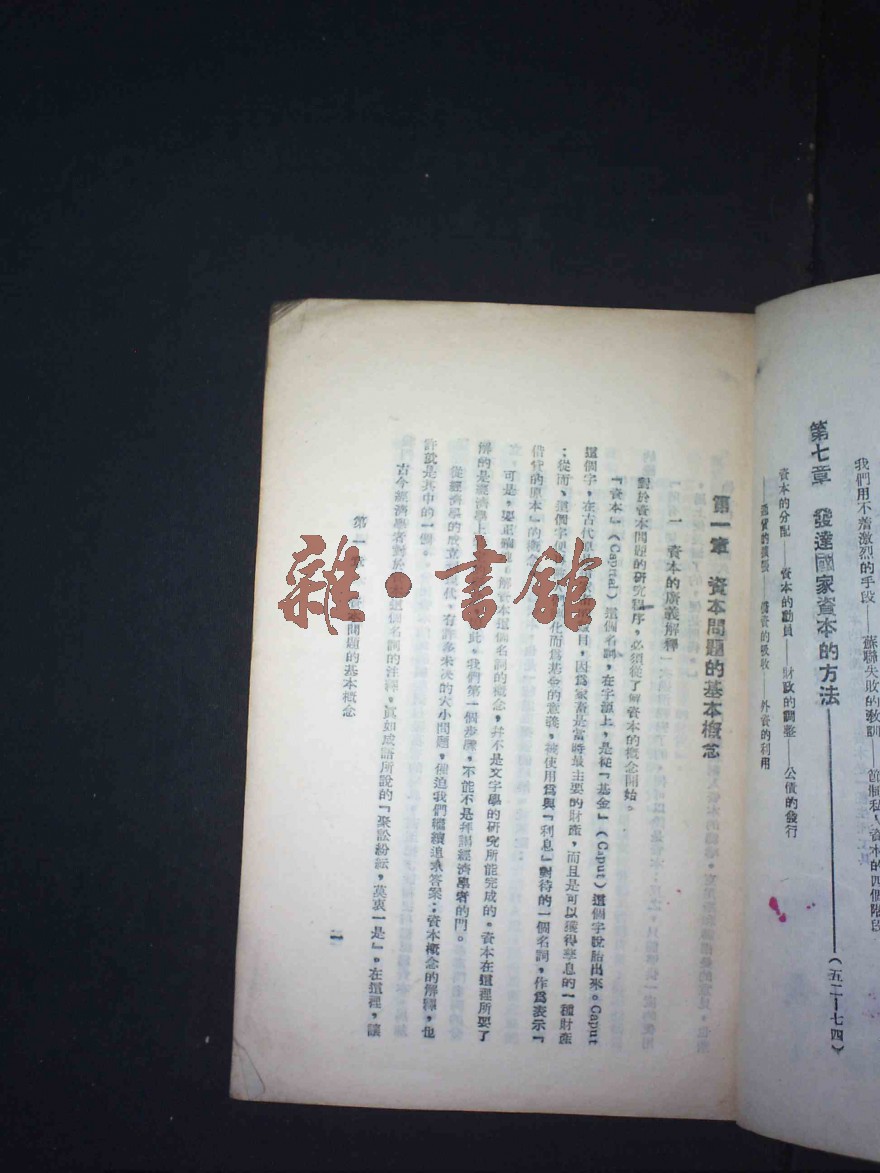 我們用不着激烈的手段——蘇聯失敗的教訓——節制私人資本的四個階段
第七章 發達國家資本的方法——(五二—七四)
資本的分配——資本的動員——財政的調整——公債的發行
——外資的利用
第一章 資本問題的基本概念
一 資本的廣義解釋
對於資本問題的研究程序,必須從了解資本的概念開始。
『資本』(Capital)這個名詞,在字源上,是從『基金』(Caput)這個字脫胎出來。Caput
這個字,在古代是指,因爲家畜是當時最主要的財產,而且是可以獲得孳息的一種財產
:從而、這個字便化而爲基金的意義,被使用爲與『利息』對待的一個名詞,作爲表示『
借貸的原本』的概念。
可是,要正解資這個名詞的概念,幷不是文字學的研究所能完成的。資本在這裡所要了
解的是經濟學上此,我們第一個步驟,不能不是拜謁經濟學者的門。
從經濟學的成立代,有許多未決的大小問題,催迫我們繼續追求答案:資本概念的解釋,也
許就是其中的一個。
古今經濟學者對於資本這個名詞的注釋,眞如成語所說的『聚訟紛紜,莫衷一是』。在這裡,讓
第一章 資本問題的基本概念
一
雜·書館